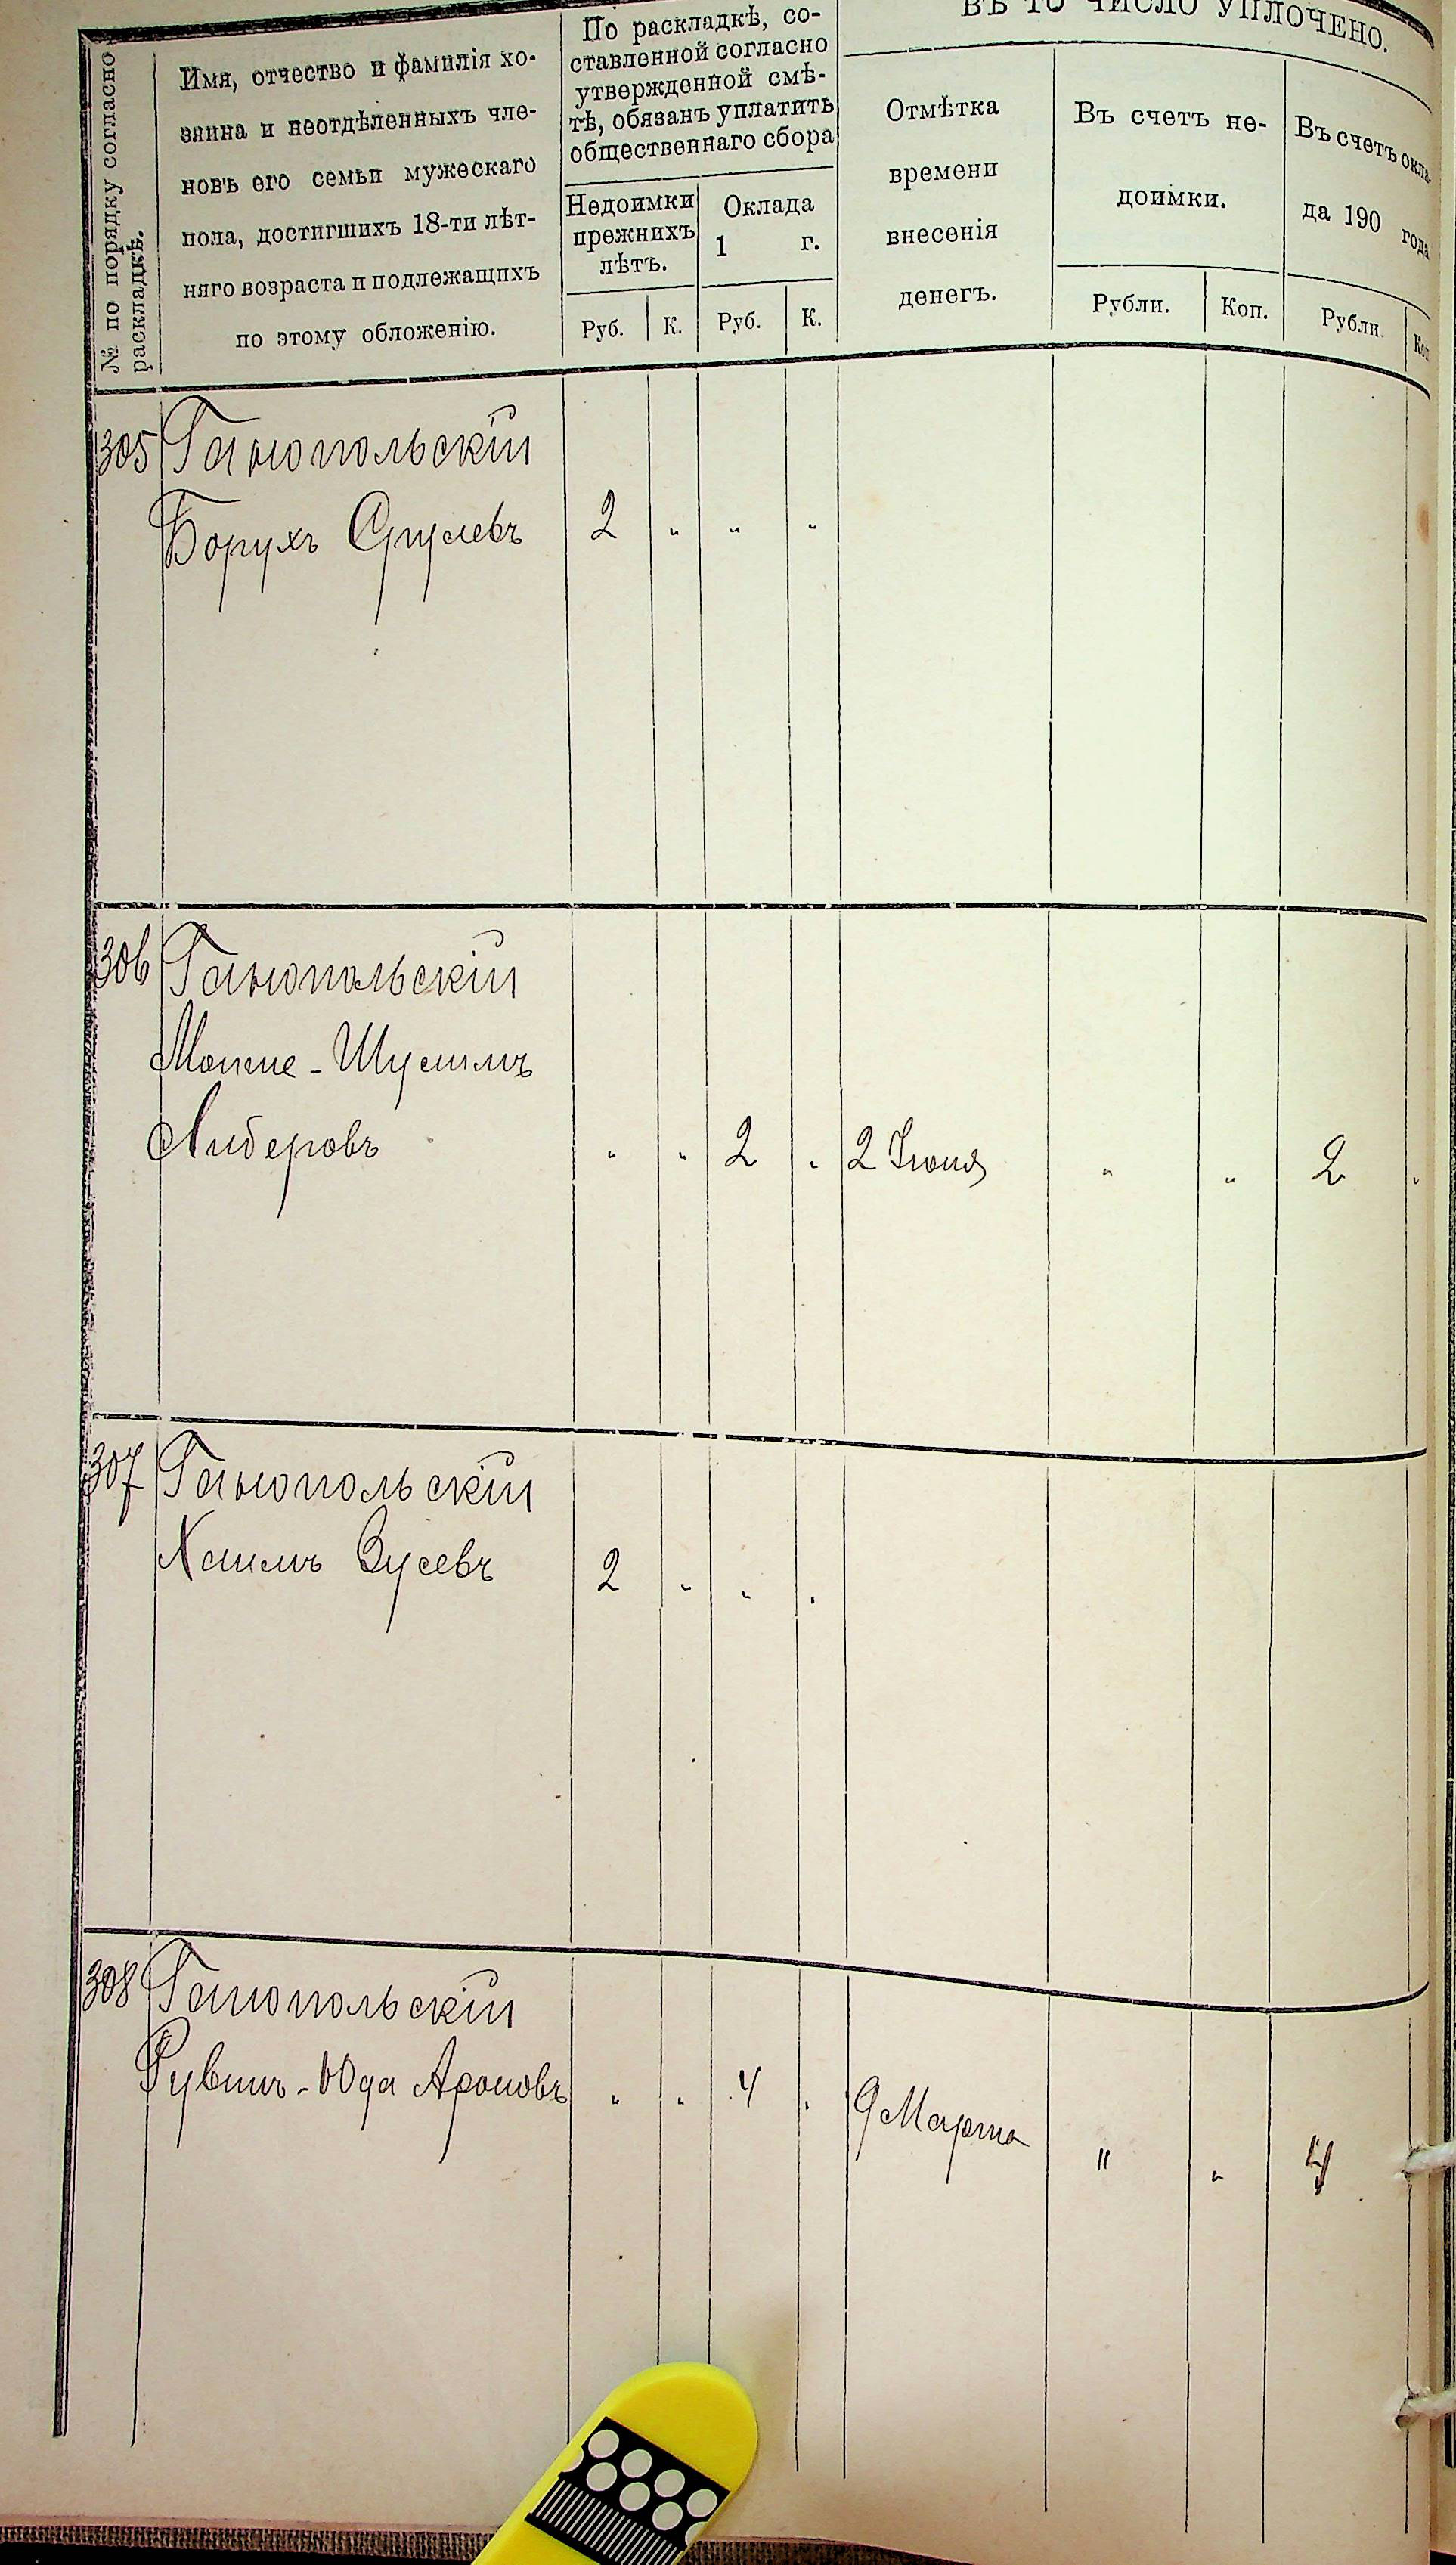 № по порядку согласно
раскладкѣ.
Имя, отчество и фамилія хо-
зяина и неотдѣленныхъ чле-
новъ его семьи мужескаго
пола, достигшихъ 18-ти лѣт-
няго возраста и подлежащихъ
по этому обложенію.
По раскладкѣ, со-
ставленной согласно
утвержденной смѣ-
тѣ, обязанъ уплатить
общественнаго сбора
Недоимки
прежнихъ
лѣтъ.
Руб. К.
Оклада
1 г.
Руб. К.
ВЪ ТО ЧИСЛО УПЛОЧЕНО.
Отмѣтка
времени
внесенія
денегъ.
Въ счетъ не-
доимки.
Рубли. Коп.
Въ счетъ окла-
да 190 года
Рубли. Коп
305 Ганопольскій
Борухъ Срулевъ 2 " " "
306 Ганопольскій
Мошие - Шулимъ
Либеровъ " " 2 " 2 Іюня " " 2 "
307 Ганопольскій
Хаимъ Вусевъ 2 " " "
308 Ганопольскій
Рувинъ - Юда Ароновъ " " 4 " 9 Марта " " 4